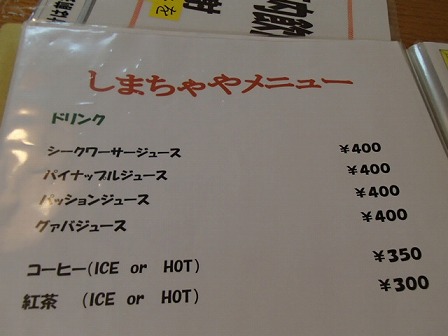 しまちゃやメニュー
ドリンク
シークワーサージュース ￥400
パイナップルジュース ￥400
パッションジュース ￥400
グァバジュース ￥400
コーヒー(ICE or HOT) ￥350
紅茶 (ICE or HOT) ￥300